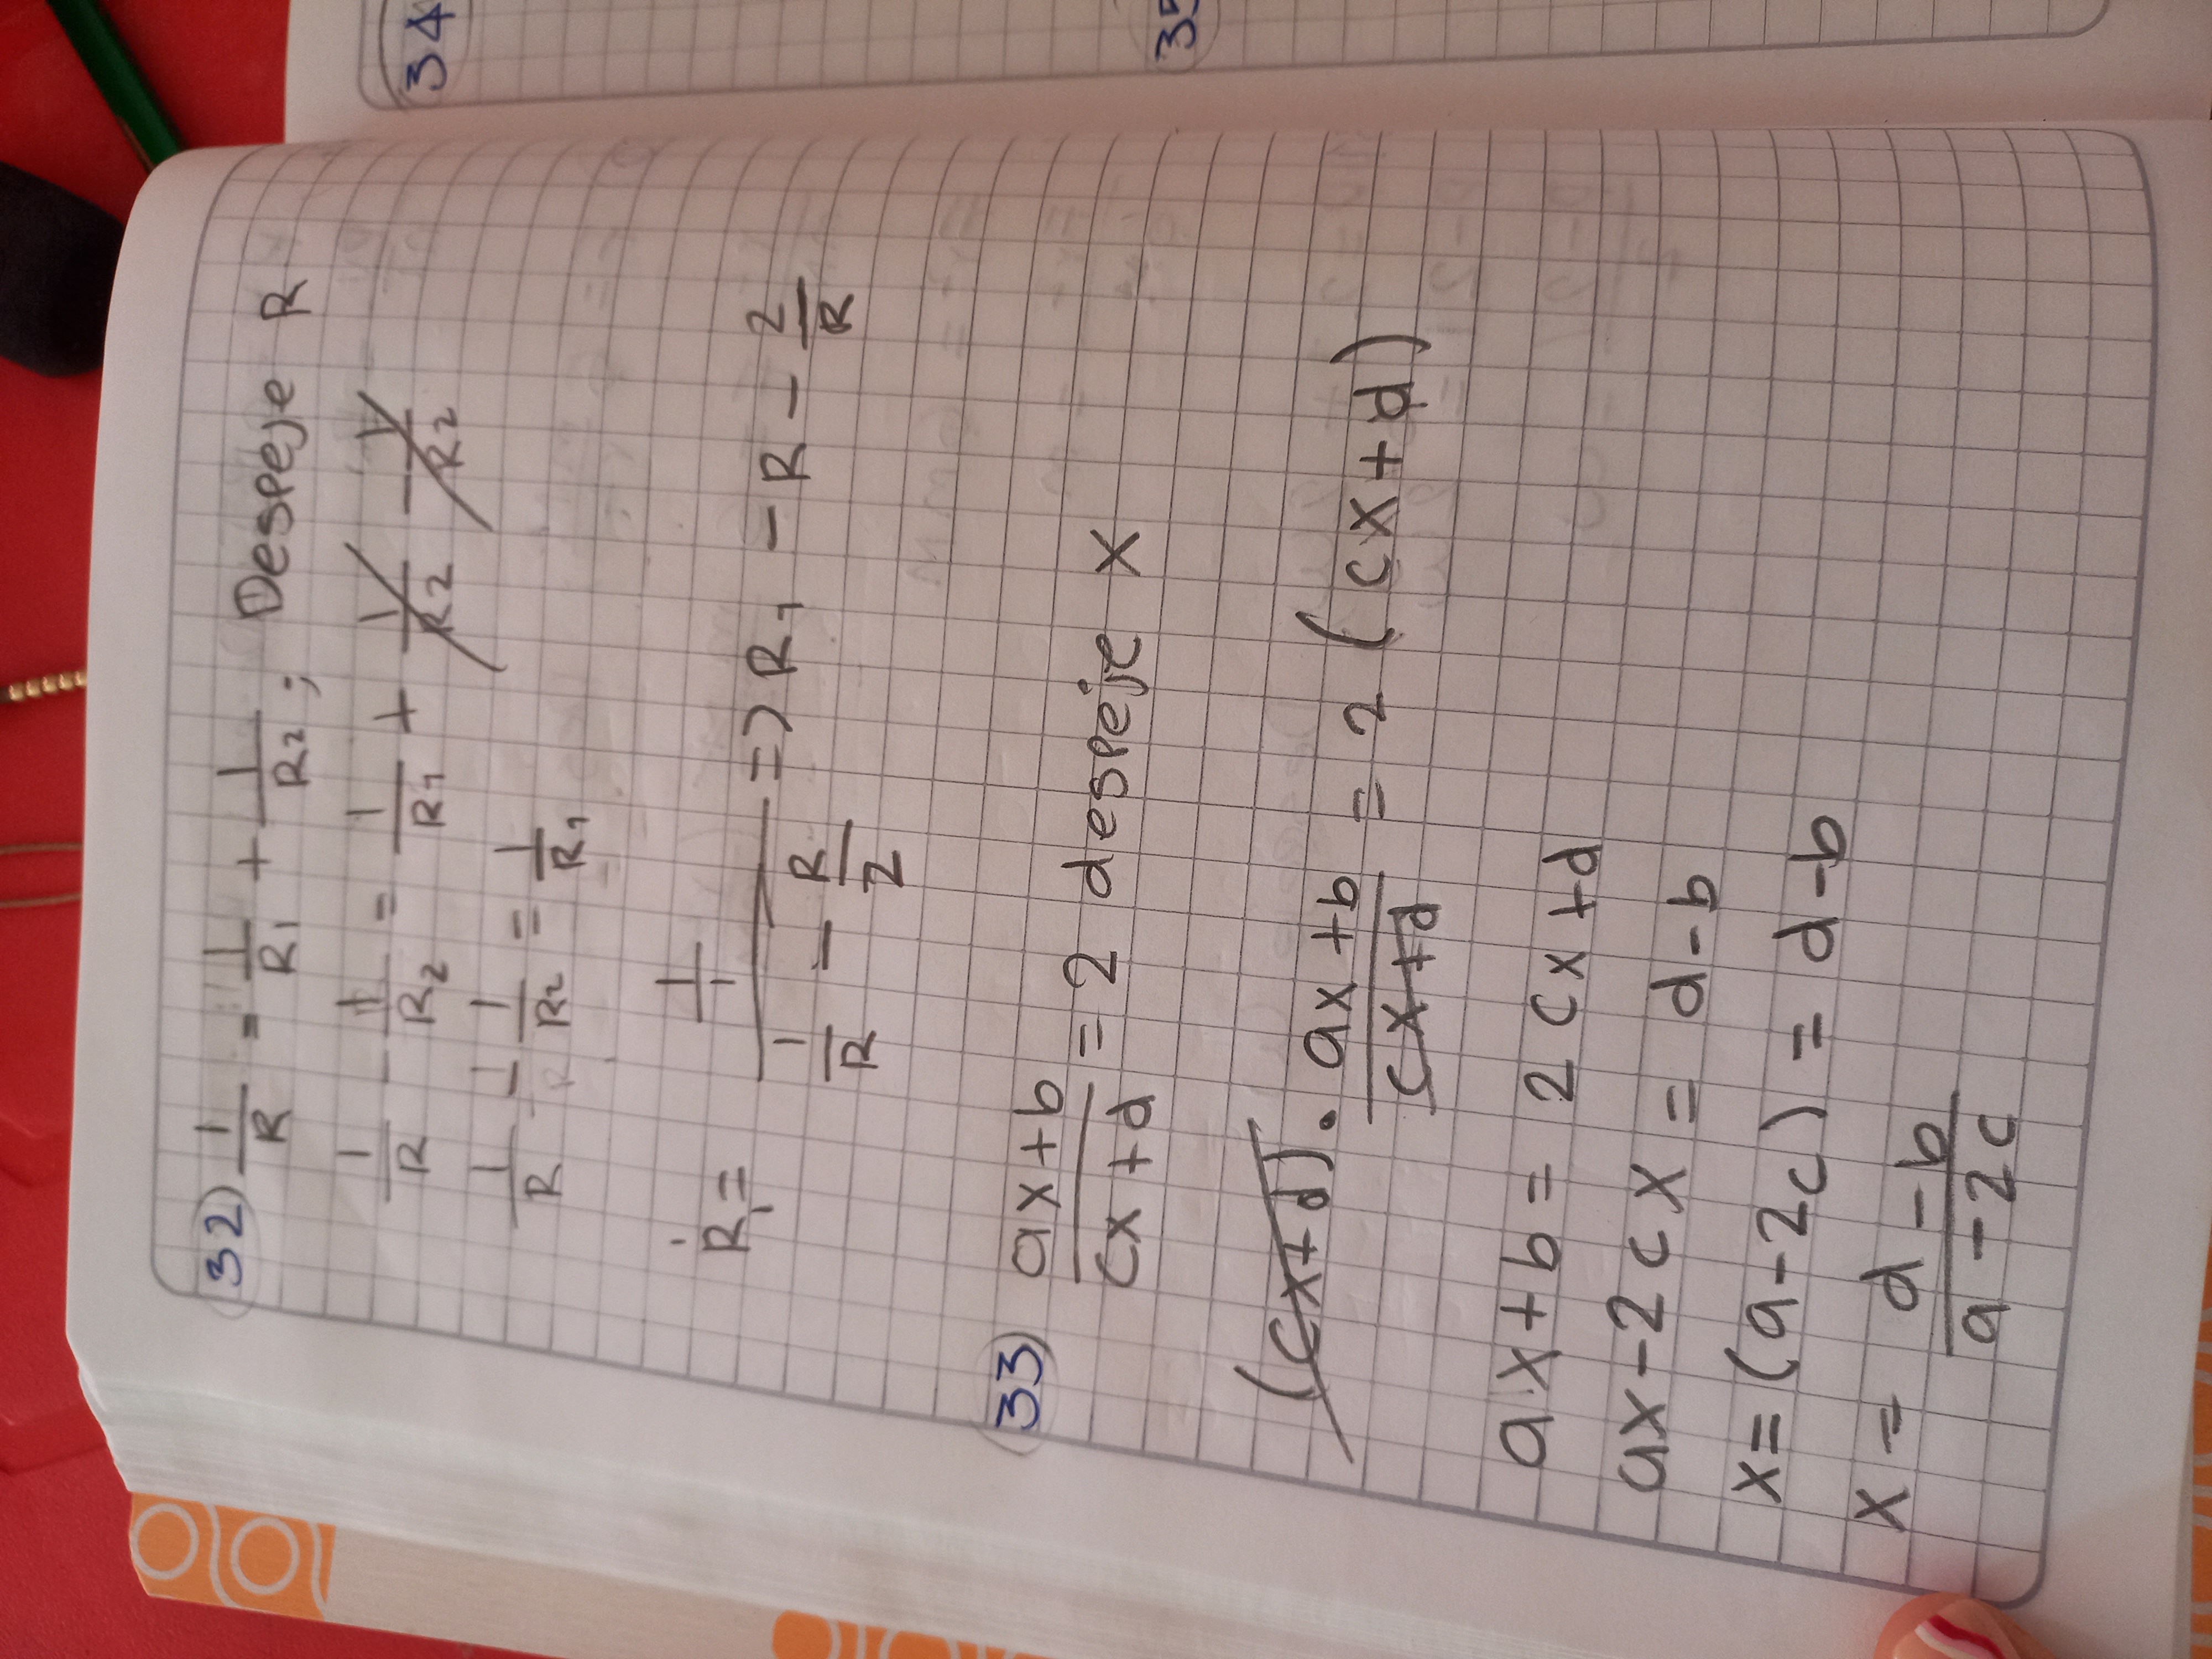 32) 1/R = 1/R1 + 1/R2; Despeje R
1/R - 1/R2 = 1/R1 + 1/R2 - 1/R2
1/R - 1/R2 = 1/R1
R1 = (1/1)/(1/R - R/2) => R1 - R - 2/R
33) (ax+b)/(cx+d) = 2 despeje x
(cx+d) · (ax+b)/(cx+d) = 2 (cx+d)
ax+b = 2cx+d
ax-2cx = d-b
x= (a-2c) = d-b
x = (d-b)/(a-2c)
34
35